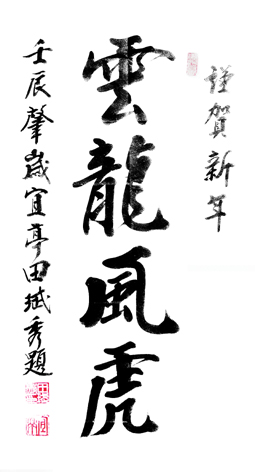 謹賀新年
雲龍風虎
壬辰肇歲宜亭田斌秀題